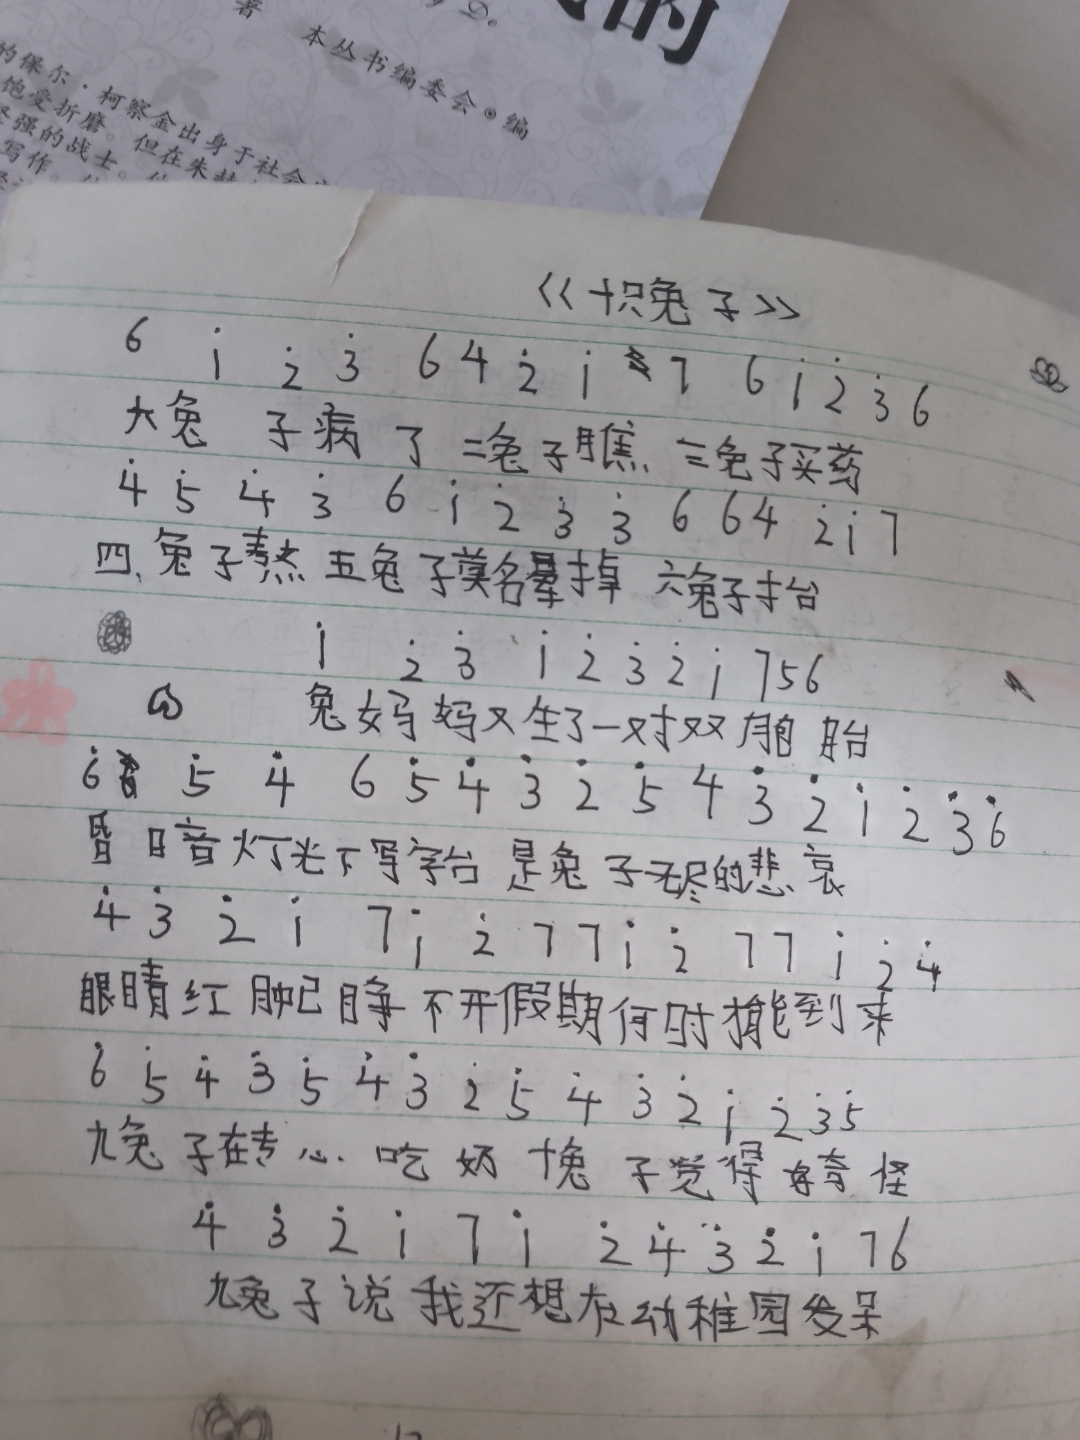 的
著
本丛书编委会·编
的保尔·柯察金出身于社会
饱受折磨。但在朱赫
坚强的战士。
写作。
《《十只兔子》》
6 i 2̇ 3̇ 6 4 2̇ i 7 6 i 2̇ 3̇ 6
大兔子病了二兔子瞧三兔子买药
4̇ 5̇ 4̇ 3̇ 6 i 2̇ 3̇ 3̇ 6 6 4 2̇ i 7
四、兔子熬五兔子莫名晕掉六兔子抬
i 2̇ 3̇ i 2̇ 3̇ 2̇ i 7 5 6
兔妈妈又生了一对双胞胎
6̇ 5̇ 4̇ 6 5̇ 4̇ 3̇ 2̇ 5̇ 4 3̇ 2̇ i 2̇ 3̇ 6̇
昏暗灯光下写字台是兔子无尽的悲哀
4̇ 3̇ 2̇ i 7 i 2̇ 7 7 i 2̇ 7 7 i 2̇ 4̇
眼睛红肿已睁不开假期何时才能到来
6̇ 5̇ 4̇ 3̇ 5̇ 4̇ 3̇ 2̇ 5̇ 4̇ 3̇ 2̇ i 2̇ 3̇ 5̇
九兔子在专心吃奶十兔子觉得好奇怪
4̇ 3̇ 2̇ i 7 i 2̇ 4̇ 3̇ 2̇ i 7 6
九兔子说我还想在幼稚园发呆